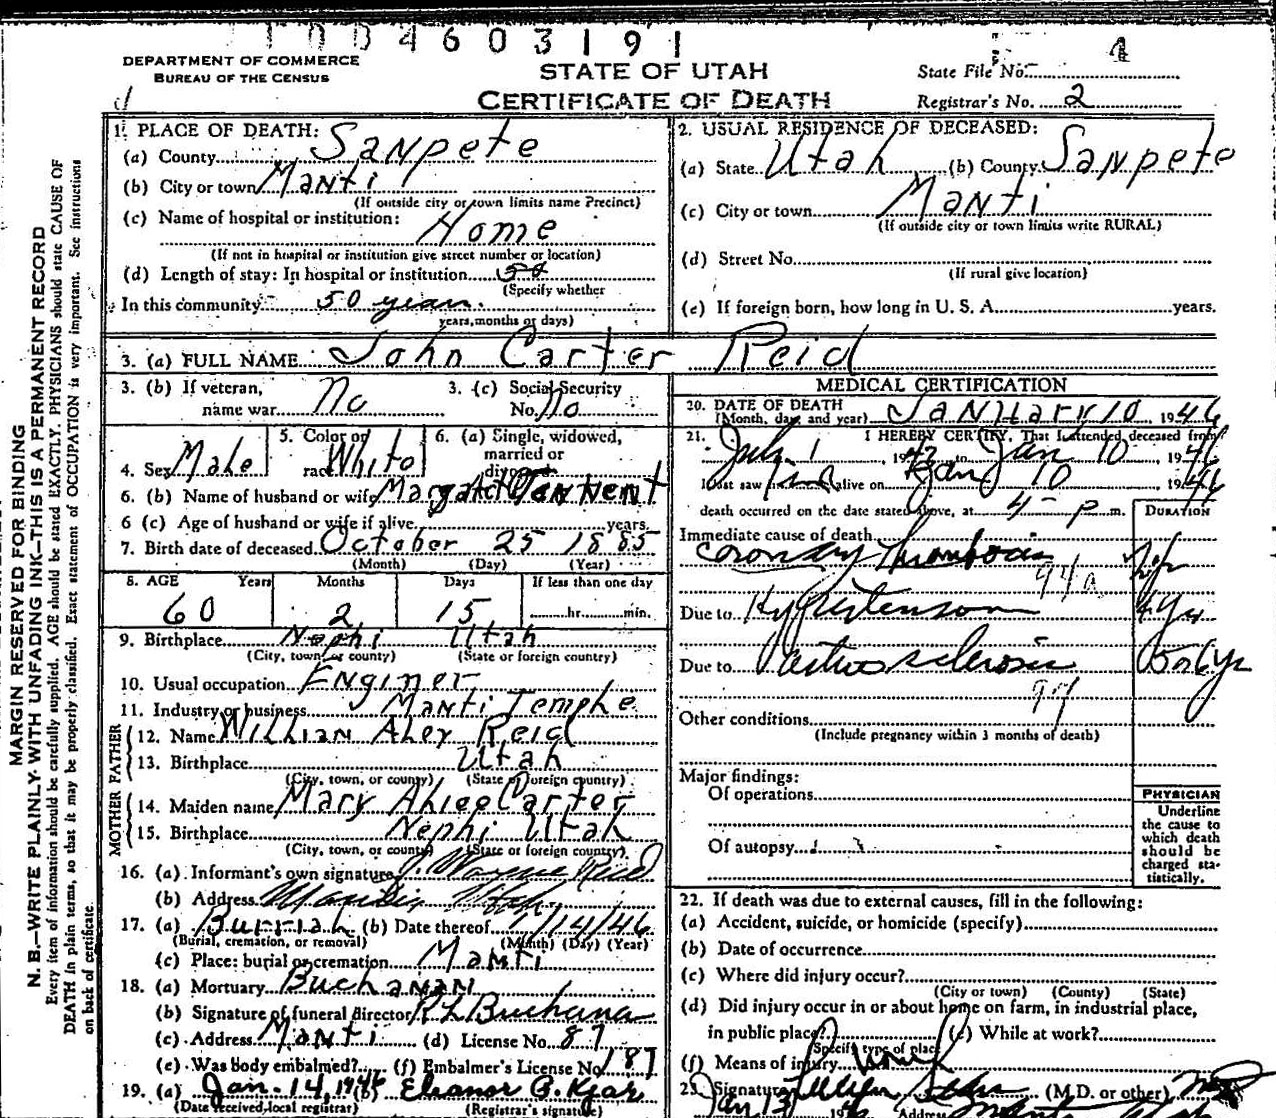 1004603191
DEPARTMENT OF COMMERCE
BUREAU OF THE CENSUS
STATE OF UTAH
CERTIFICATE OF DEATH
State File No.
Registrar's No. 2
MARGIN RESERVED FOR BINDING
N. B.—WRITE PLAINLY WITH UNFADING INK—THIS IS A PERMANENT RECORD
Every item of information should be carefully supplied. AGE should be stated EXACTLY. PHYSICIANS should state CAUSE OF
DEATH in plain terms, so that it may be properly classified. Exact statement of OCCUPATION is very important. See instructions
on back of certificate.
1. PLACE OF DEATH:
(a) County Sanpete
(b) City or town Manti
(If outside city or town limits name Precinct)
(c) Name of hospital or institution:
Home
(If not in hospital or institution give street number or location)
(d) Length of stay: In hospital or institution 50
(Specify whether
In this community 50 years
years, months or days)
2. USUAL RESIDENCE OF DECEASED:
(a) State Utah (b) County Sanpete
(c) City or town Manti
(If outside city or town limits write RURAL)
(d) Street No.
(If rural give location)
(e) If foreign born, how long in U. S. A. years.
3. (a) FULL NAME John Carter Reid
3. (b) If veteran, name war No
3. (c) Social Security No. No
4. Sex Male
5. Color or race White
6. (a) Single, widowed, married or divorced
6. (b) Name of husband or wife Margaret
6 (c) Age of husband or wife if alive years.
7. Birth date of deceased October 25 1885
(Month) (Day) (Year)
8. AGE Years Months Days If less than one day
60 2 15 hr. min.
9. Birthplace Nephi Utah
(City, town, or county) (State or foreign country)
10. Usual occupation Enginer
11. Industry or business Manti Temple
FATHER
12. Name William Alex Reid
13. Birthplace Utah
(City, town, or county) (State or foreign country)
MOTHER
14. Maiden name Mary Alice Carter
15. Birthplace Nephi Utah
(City, town, or county) (State or foreign country)
16. (a) Informant's own signature J. Wayne Reid
(b) Address Utah
17. (a) Burrial (b) Date thereof 1/14/46
(Burial, cremation, or removal) (Month) (Day) (Year)
(c) Place: burial or cremation Manti
18. (a) Mortuary Buchanan
(b) Signature of funeral director R L Buchanan
(c) Address Manti (d) License No. 87
(e) Was Body embalmed? (f) Embalmer's License No. 187
19. (a) Jan. 14, 1946 (b) Eleanor B. Kjar
(Date received, local registrar) (Registrar's signature)
MEDICAL CERTIFICATION
20. DATE OF DEATH
(Month, day, and year) January 10, 1946
21. I HEREBY CERTIFY, That I attended deceased from
July 1 1942 to Jan 10 1946
I last saw him alive on Jan 10 1946
death occurred on the date stated above, at 4 - P m.
DURATION
Immediate cause of death
Coronary Thrombosis
94a
Due to Hypertension 4 yrs
Due to Arteriosclerosis 5 or 6 yr
97
Other conditions
(Include pregnancy within 3 months of death)
Major findings:
Of operations
Of autopsy
PHYSICIAN
Underline
the cause to
which death
should be
charged sta-
tistically.
22. If death was due to external causes, fill in the following:
(a) Accident, suicide, or homicide (specify)
(b) Date of occurrence
(c) Where did injury occur?
(City or town) (County) (State)
(d) Did injury occur in or about home on farm, in industrial place,
in public place? (e) While at work?
(Specify type of place)
(f) Means of injury
23. Signature (M.D. or other)
Address